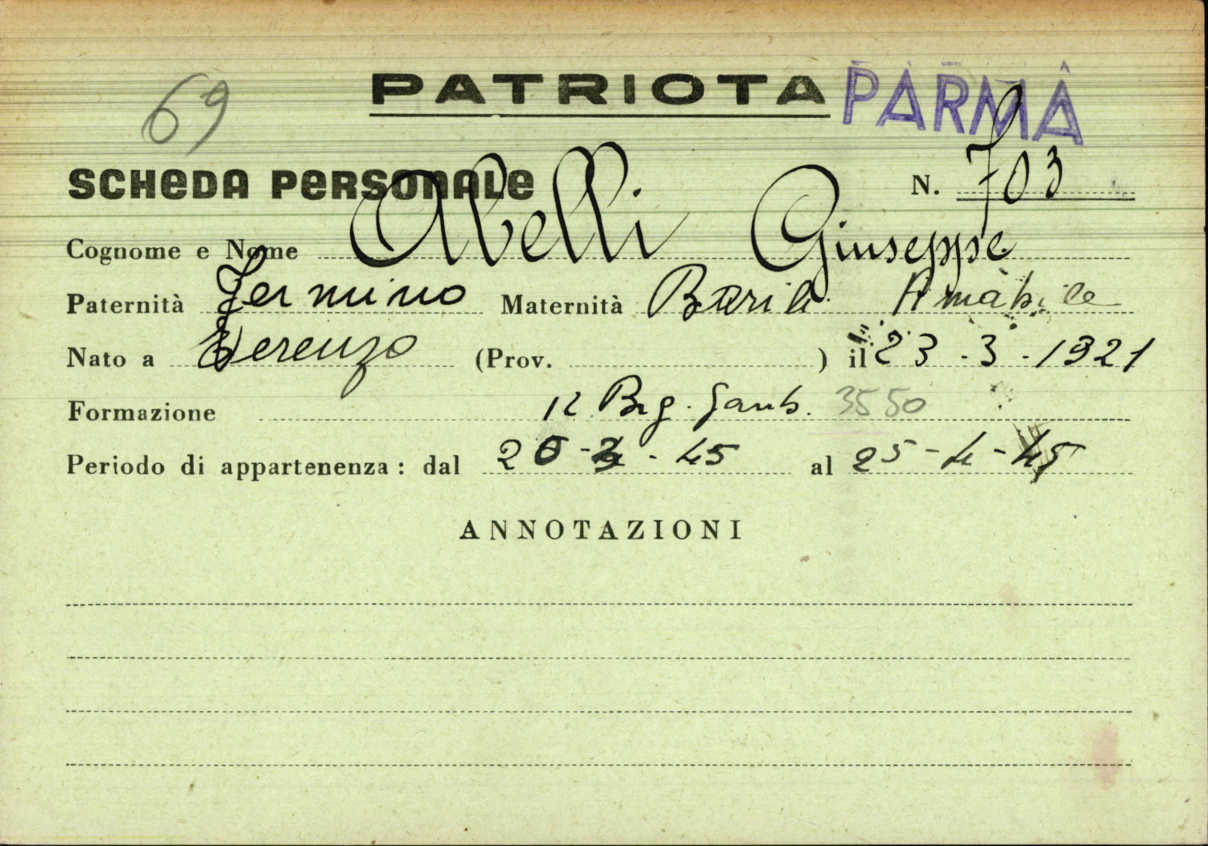 69 PATRIOTA PARMA
SCHEDA PERSONALE N. 703
Cognome e Nome Abelli Giuseppe
Paternità Fermino Maternità Barili Amabile
Nato a Terenzo (Prov. ) il 23-3-1921
Formazione 12 Brg. Garib. 3550
Periodo di appartenenza: dal 20-3-45 al 25-4-45
ANNOTAZIONI